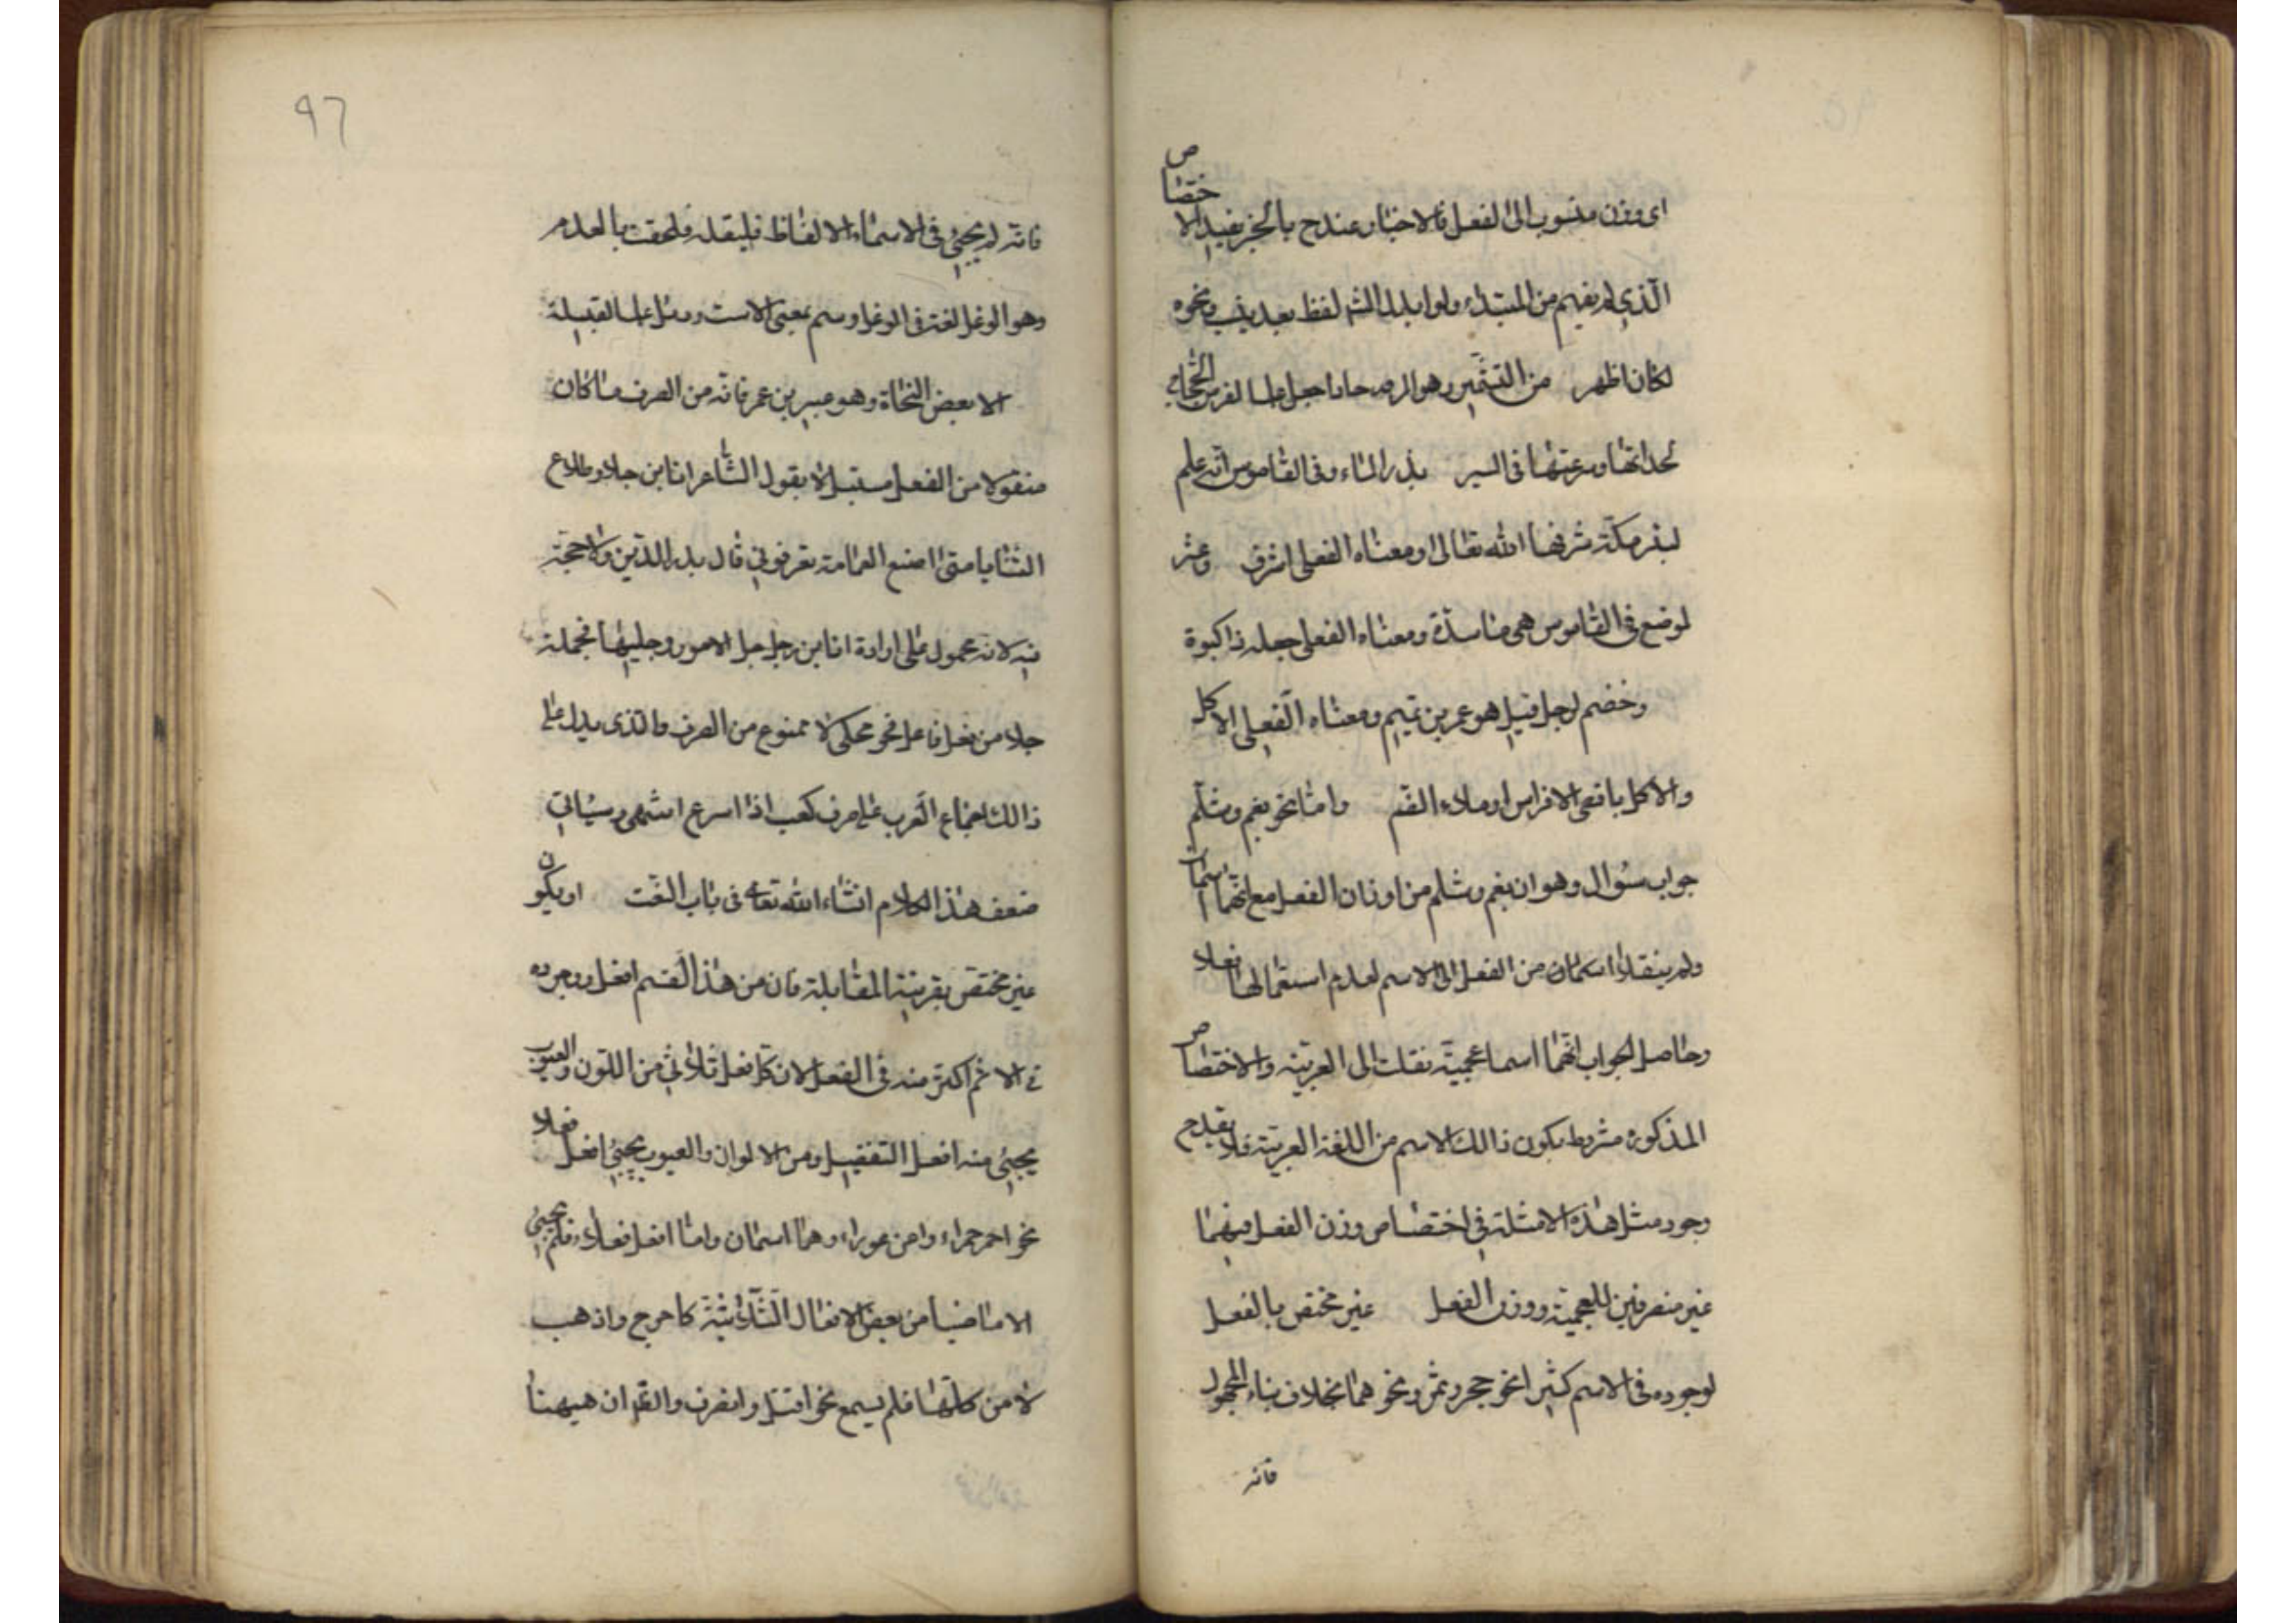 اى وزن منسوب الى الفعل فالاخبار عندح بالخبر يفيد الاختصاص
الّذي لم يفهم من المبتداء ولو ابدل الشم لفظ بعد ونحوه
لكان اظهر من التشمير وهو المر جعل علما لفرس الحجاج
لحداثتها وسرعتها فى السير بذر الماء وفى القاموس انّه علم
لبئر مكّة شرفها الله تعالى او معناه الفعلى اشرق وعثر
لموضع فى القاموس هى ماسدة ومعناه الفعلى جعله ذا كبوة
وخضم لرجل قيل هو عمر بن تميم ومعناه الفعلى الاكل
والاكل باقصى الاضراس او ملاء الفم وامّا نحو بقم وشلم
جواب سئوال وهو ان بقم وشلم من اوزان الفعل مع انّهما اسمان
ولم ينقلا من الفعل الى الاسم لعدم استعمالهما فعلا
وحاصل الجواب انّهما اسما عجميّة نقلت الى العربيّة والاختصاص
المذكورة مشروط بكون ذالك الاسم من اللغة العربيّة فلا يقدح
وجود مثل هذه الامثلة فى اختصاص وزن الفعل فيهما
غير منصرفين للعجميّة ووزن الفعل غير مختص بالفعل
لوجوده فى الاسم كثيرا نحو حجر وثمر ونحوهما بخلاف بناء المجهول
فانه
٩٦
فانّه لم يجيئ فى الاسماء الا الفاظ قليلة فلحقت بالعدم
وهو الوعل لغة فى الوعل وسم بمعنى الاست ودئل علما لقبيلة
الا بعض النحاة وهو عيسى بن عمر فانّه من الصرف ما كان
منقولا من الفعل مستدلا بقول الشّاعر انا ابن جلا وطلاع
الثنايا متى اضع العمامة تعرفونى قال بدر الدّين ولا حجّة
فيه لانه محمول على ارادة انا ابن رجل جلا الامور وجليها فجملة
جلا من فعل فاعل فهو محكى لا ممنوع من الصرف والذى يدل على
ذالك اجماع العرب على صرف كعب اذا اسرع انتهى وسياتى
ضعف هذا الكلام انشاء الله تعالى فى باب النعت او يكون
غير مختص بقرينة المقابلة فان من هذا القسم افعل ووجوده
فى الاسم اكثر منه فى الفعل لان كل فعل ثلاثي من اللون والعيوب
يجيئ منه افعل التفضيل ومن الالوان والعيوب يجيئ افعل فعلاء
نحو احمر حمراء واعور عوراء وهما اسمان وامّا افعل فعلا فلم يجيئ
الا ماضيا من بعض الافعال الثلاثيّة كاخرج واذهب
لا من كلّها فلم يسمع نحو اقتل وانصر والقرآن هيهنا